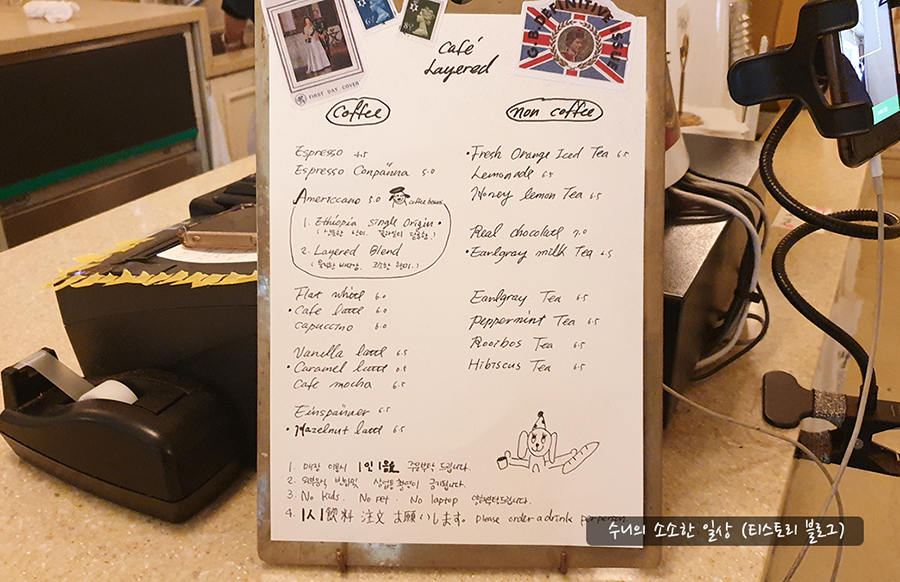 FIRST DAY COVER
G.B. DEFINITIVE ISSUE
Café
Layered
Coffee
Espresso 4.5
Espresso Conpanna 5.0
Americcano 5.0 coffee bean
1. Ethiopia single Origin
2. Layered Blend
Flat white 6.0
• Cafe latte 6.0
Capuccino 6.0
Vanilla latte 6.5
• Caramel latte
Cafe mocha 6.5
Einspänner 6.5
• Hazelnut latte 6.5
non coffee
• Fresh Orange Iced Tea 6.5
Lemonade 6.5
Honey lemon Tea 6.5
Real chocolate 7.0
• Earlgray milk Tea 6.5
Earlgray Tea 6.5
Peppermint Tea 6.5
Rooibos Tea 6.5
Hibiscus Tea 6.5
1. 매장 이용시 1인 1음료 주문부탁 드립니다.
2. 외부음식 반입및 상업용 촬영이 금지됩니다.
3. No kids. No pet. No laptop 양해부탁드립니다.
4. 1人1飲料 注文 お願いします。 please order a drink per person
수니의 소소한 일상 (티스토리 블로그)